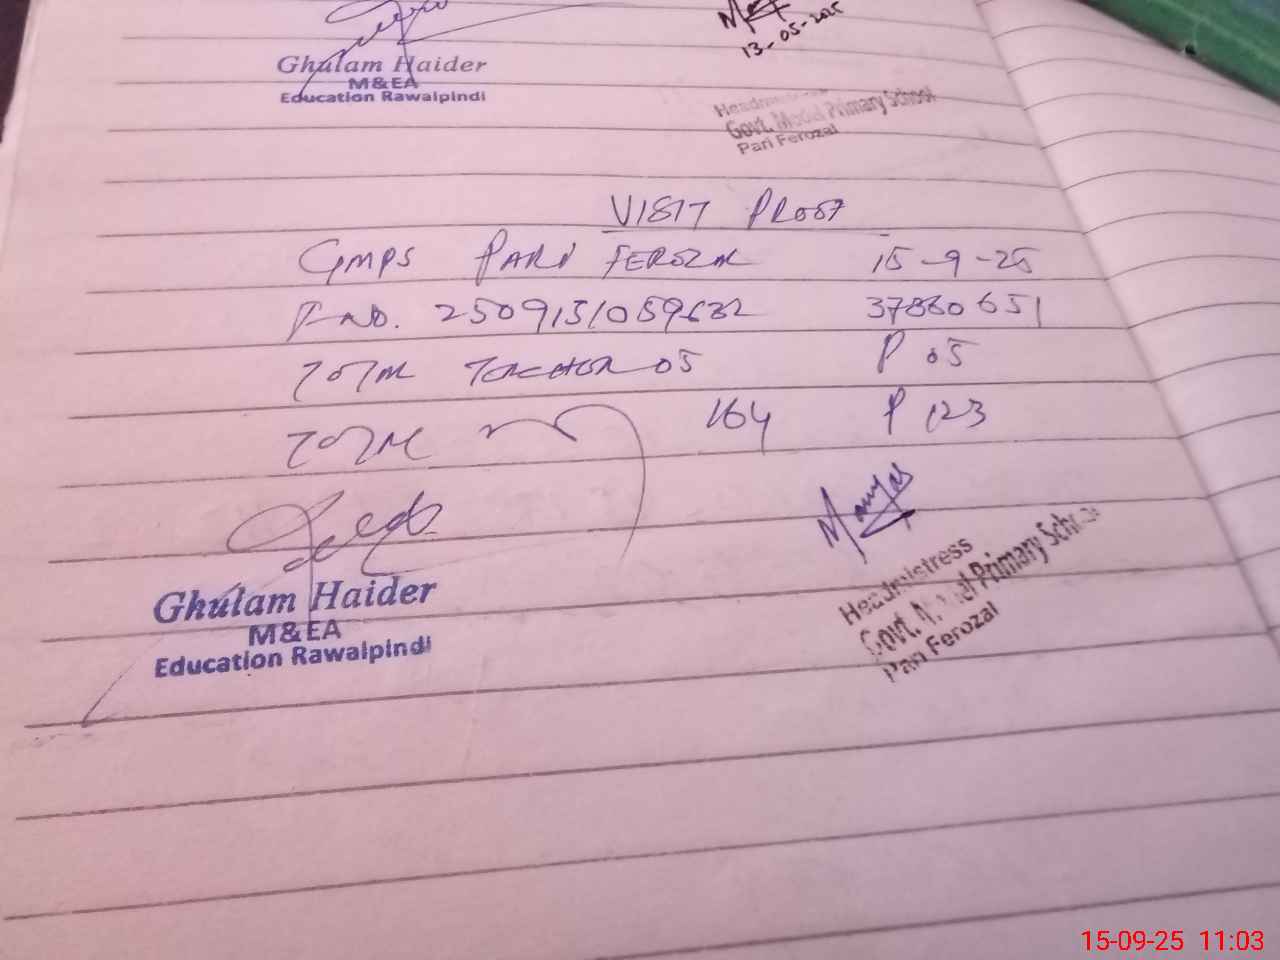 13-05-2025
Ghulam Haider
M&EA
Education Rawalpindi
Headmistress
Govt. Model Primary School
Pari Ferozal
VISIT PROOF
GMPS PARI FEROZAL 15-9-25
P-NO. 2509151059632 37330651
TOTAL TEACHER 05 P 05
TOTAL 164 P 123
Ghulam Haider
M&EA
Education Rawalpindi
Headmistress
Govt. Model Primary School
Pari Ferozal
15-09-25 11:03